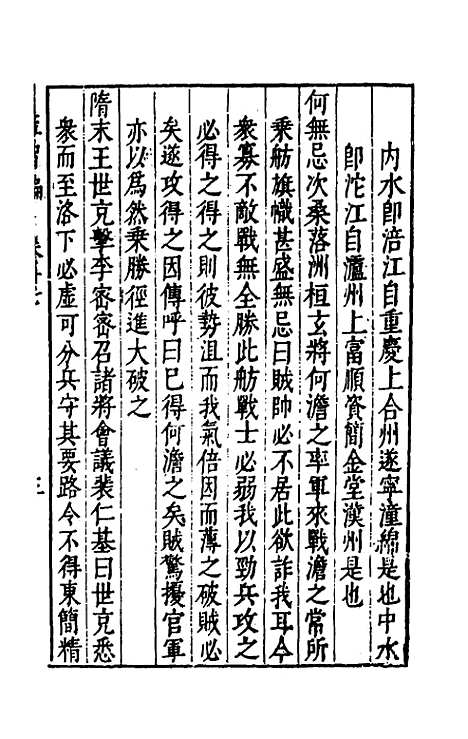 內水即涪江自重慶上合州遂寧潼綿是也中水
即沱江自瀘州上富順資簡金堂漢州是也
何無忌次桑落洲桓玄將何澹之率軍來戰澹之常所
乘舫旗幟甚盛無忌曰賊帥必不居此欲詐我耳今
衆寡不敵戰無全勝此舫戰士必弱我以勁兵攻之
必得之得之則彼勢沮而我氣倍因而薄之破賊必
矣遂攻得之因傳呼曰已得何澹之矣賊驚擾官軍
亦以爲然乘勝徑進大破之
隋末王世充擊李密密召諸將會議裴仁基曰世充悉
衆而至洛下必虛可分兵守其要路令不得東簡精